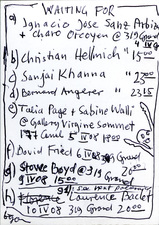 WAITING FOR
a) Ignacio Jose Sanz Arbizu
+ Charo Orcoyen @ 319 Grand
4 IV 08
b) Christian Hellmich " 15 00
c) Sanjai Khanna " 23 00
d) Bernard Angerer " 23 15
e) Talia Page + Sabine Walli
@ Gallery Virgine Sommet
Canal 5 IV 08
f) David Fried 6 IV 08 319 Grand
g) Stover Boyd @ 319 Grand
9 IV 08 15 00
h) Laurence Baclet
10 IV 08 319 Grand 20 00